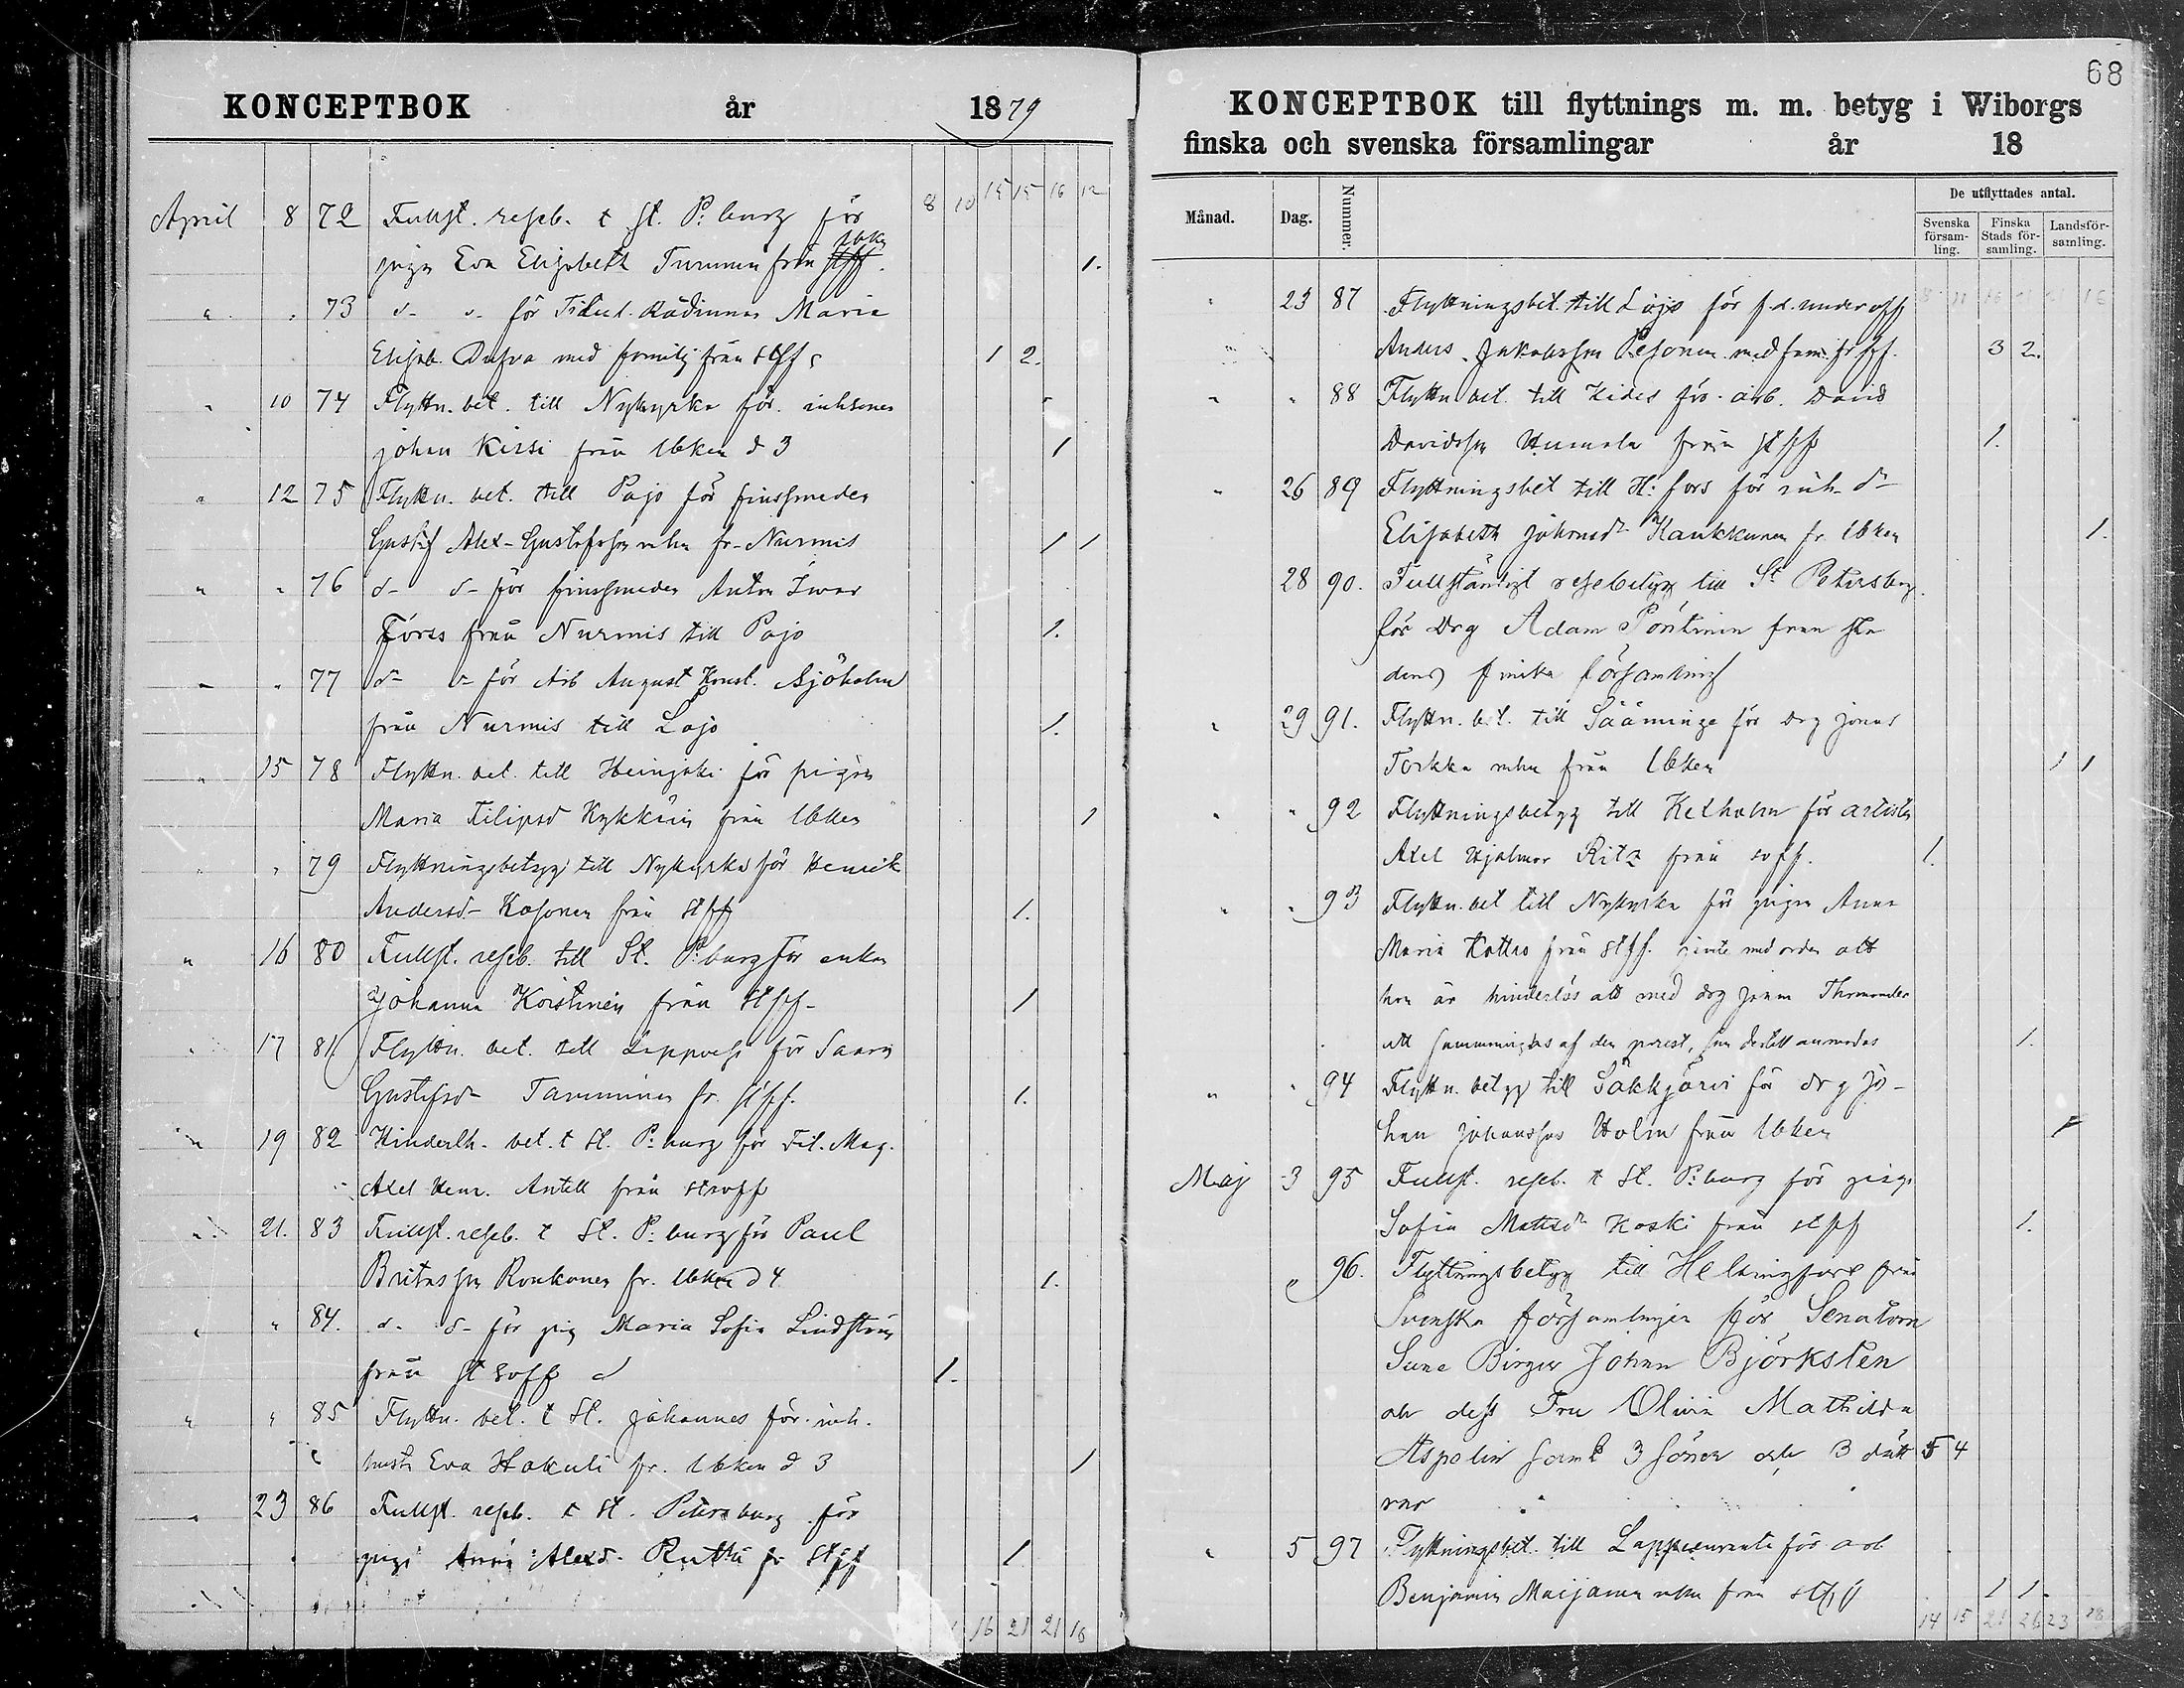 KONCEPTBOK år 1879
8 10 15 15 16 12
April 8 72 Fullst. reseb. t St. P:burg för
lbkn
pigan Eva Elisabeth Turunen från stff. 1.
" " 73 d- o- för Titul. Rådinnan Maria
Elisab. Dufva med familj från stff 1 2.
" 10 74 Flyttn. bet. till Nykyrka för inhsonen
Johan Kirsi från lbken d 3 1
" 12 75 Flyttn. bet. till Pojo för finsmeden
Gustaf Alex. Gustafsson mhu fr. Nurmis 1 1
" " 76 d- o- för finsmeden Anton Ivar
Förss från Nurmis till Pojo 1.
" " 77 d- o- för Arb August Konst. Sjöholm
från Nurmis till Lojo 1.
" 15 78 Flyttn. bet. till Heinjoki för pigan
Maria Filipsd Kykkänen från lbken 1
" " 79 Flyttningsbetyg till Nykyrka för Henrik
Andersd- Kosonen från stff 1.
" 16 80 Fullst. reseb. till St. P:burg för enkan
Johanna Koistinen från stff- 1
" 17 81 Flyttn. bet. till Lappvesi för Saara
Gustafsd- Tamminen fr. stff. 1.
" 19 82 Hinderlh. bet. t St. P:burg för Fil. Mag.
Axel Henr. Antell från stsvff
" 21. 83 Fullst. reseb. t St. P:burg för Paul
Britasson Ronkanen fr. lbken d 4 1.
" " 84. d- o- för pig Maria Sofia Lindström
från st svff 1.
" " 85 Flyttn. bet. t St. Johannes för inh.
hustr Eva Hakuli fr. lbken d 3 1
" 23 86 Fullst. reseb. t St. Petersburg för
pigan Anna Alexd. Ruthu fr stff 1
16 21 21 18
68
KONCEPTBOK till flyttnings m. m. betyg i Wiborgs
finska och svenska församlingar år 18
Månad. Dag. Nummer. De utflyttades antal.
Svenska församling. Finska Stads församling. Landsförsamling.
" 23 87 Flyttningsbet. till Lojo för f.d. underoff
Anders Jakobsson Pesonen med fam. fr stff. 3 2.
" " 88 Flyttn bet. till Kides för arb. David
Davidsson Humala från stff 1.
" 26 89 Flyttningsbet till H:fors för inh. dr
Elisabeth Johansdr Kaukkunen fr. lbken 1.
28 90. Fullständigt resebetyg till St Petersburg
för Drg Adam Pöntinen från sta
dens finska församling
" 29 91. Flyttn. bet. till Sääminge för Drg Jonas
Torkka mhu från lbken 1 1
" " 92 Flyttningsbetyg till Kexholm för artisten
Axel Hjalmar Ritz från svff. 1.
" " 93 Flyttn. bet till Nykyrka för pigan Anna
Maria Kottas från stff. jemte med orden att
hon är hinderlös att med drg Johan Thomander
att sammanvigas af den prest, som dertill anmodas 1.
" " 94 Flyttn. betyg till Säkkjärvi för drg Jo-
han Johansson Holm från lbken 1
Maj 3 95 Fullst. reseb. t St. P:burg för pigan
Sofia Matsdr Koski från stff 1.
" 96. Flyttningsbetyg till Helsingfors från
Svenska församlingen för Senatorn
Sune Birger Johan Björksten
och dess Fru Olivia Mathilda
Aspelin samt 3 söner och 3 dött 5 4
rar
" 5 97 Flyttningsbet. till Lappeenranta för arb
Benjamin Maijanen mhu från stff 1 1
14 15 21 26 23 28